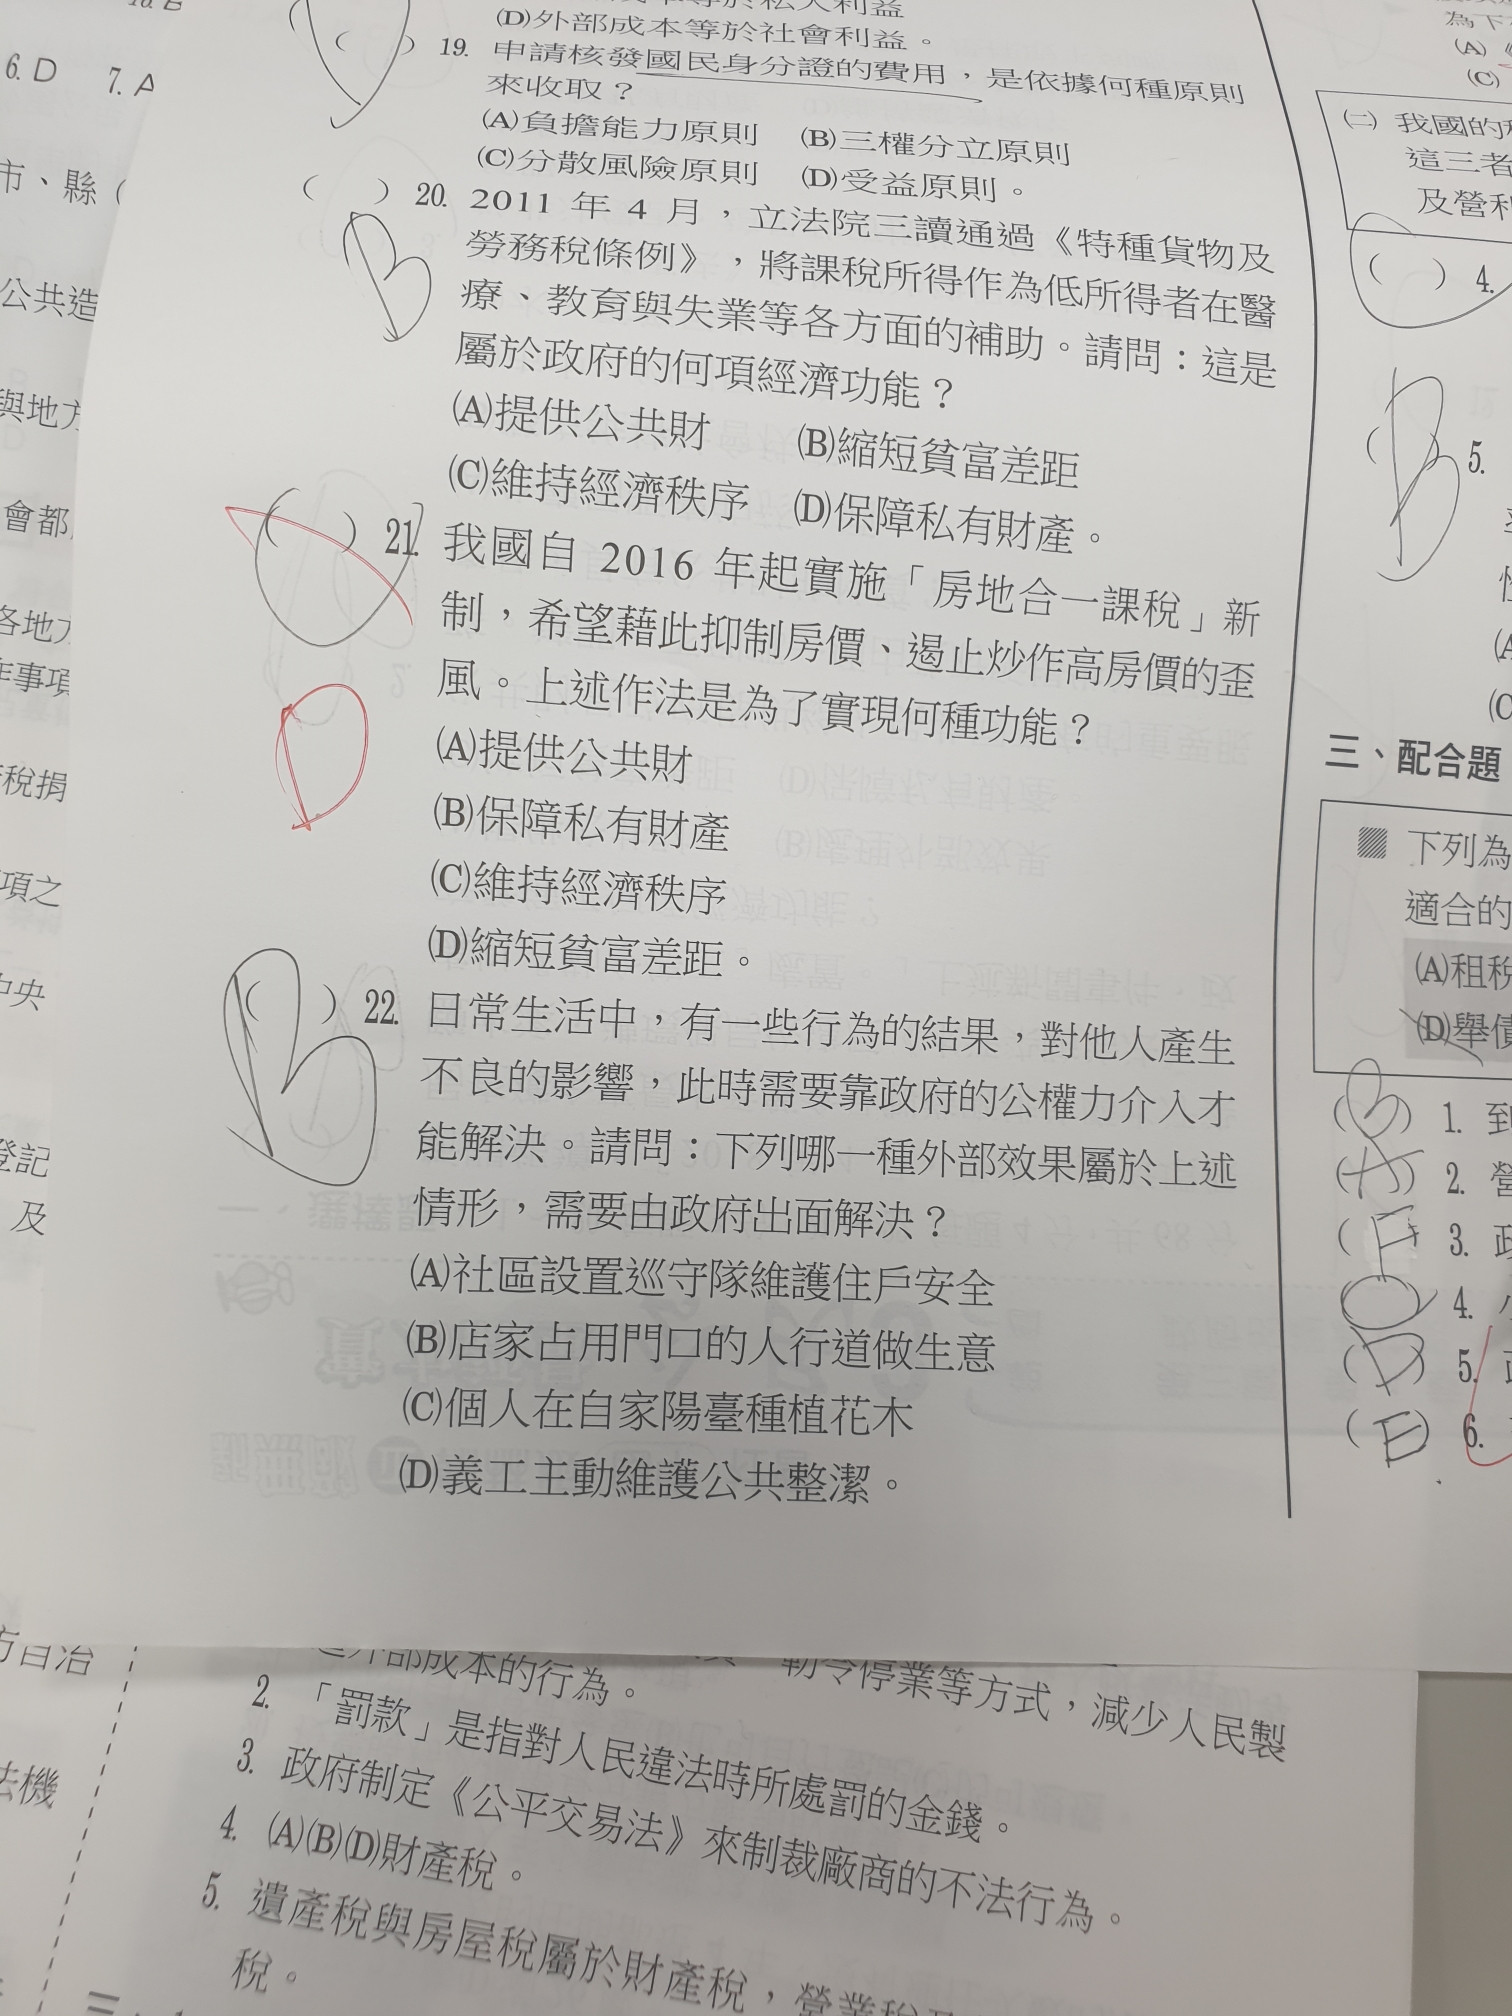 6. D 7. A
市、縣(
公共造
與地方
會都
各地方
作事項
稅捐
項之
中央
登記
及
(D)外部成本等於社會利益。
( ) 19. 申請核發國民身分證的費用,是依據何種原則
來收取?
(A)負擔能力原則 (B)三權分立原則
(C)分散風險原則 (D)受益原則。
( ) 20. 2011 年 4 月,立法院三讀通過《特種貨物及
勞務稅條例》,將課稅所得作為低所得者在醫
療、教育與失業等各方面的補助。請問:這是
屬於政府的何項經濟功能?
B
(A)提供公共財 (B)縮短貧富差距
(C)維持經濟秩序 (D)保障私有財產。
( ) 21. 我國自 2016 年起實施「房地合一課稅」新
制,希望藉此抑制房價、遏止炒作高房價的歪
風。上述作法是為了實現何種功能?
D
(A)提供公共財
(B)保障私有財產
(C)維持經濟秩序
(D)縮短貧富差距。
B
( ) 22. 日常生活中,有一些行為的結果,對他人產生
不良的影響,此時需要靠政府的公權力介入才
能解決。請問:下列哪一種外部效果屬於上述
情形,需要由政府出面解決?
(A)社區設置巡守隊維護住戶安全
(B)店家占用門口的人行道做生意
(C)個人在自家陽臺種植花木
(D)義工主動維護公共整潔。
為下
(A)
(C)
(二) 我國的
這三者
及營利
( ) 4.
( B ) 5.
(A
(C
三、配合題
下列為
適合的
(A)租稅
(D)舉債
(B) 1. 到
(A) 2. 營
(F) 3. 政
(C) 4. 小
(D) 5. 政
(E) 6.
方自治
法機
外部成本的行為。
勒令停業等方式,減少人民製
2. 「罰款」是指對人民違法時所處罰的金錢。
3. 政府制定《公平交易法》來制裁廠商的不法行為。
4. (A)(B)(D)財產稅。
5. 遺產稅與房屋稅屬於財產稅,營業稅
稅。